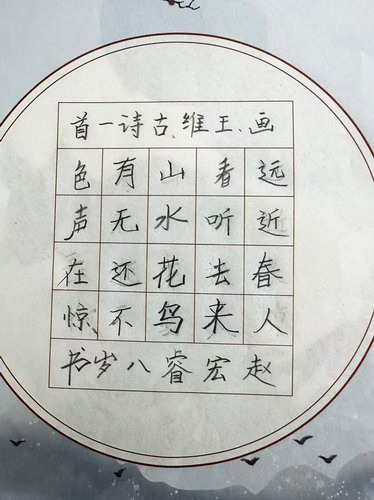 画、王维、古诗一首
远看山有色
近听水无声
春去花还在
人来鸟不惊
赵宏睿八岁书